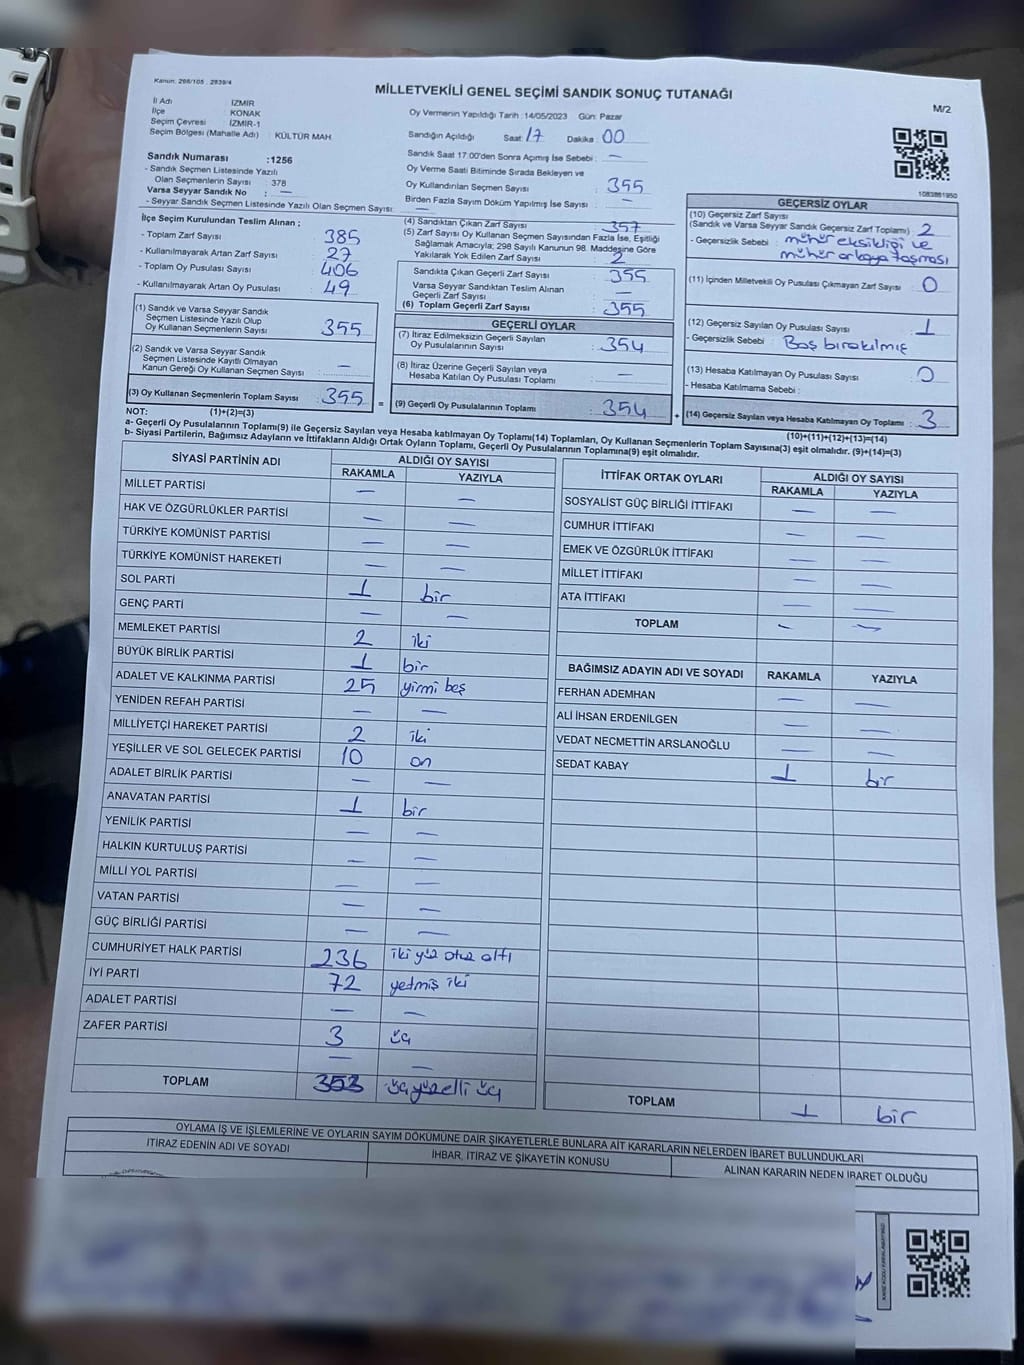 Kanun: 298/105 : 2839/4
MİLLETVEKİLİ GENEL SEÇİMİ SANDIK SONUÇ TUTANAĞI
M/2
İl Adı : İZMİR
İlçe : KONAK
Seçim Çevresi : İZMİR-1
Seçim Bölgesi (Mahalle Adı) : KÜLTÜR MAH.
Oy Vermenin Yapıldığı Tarih :14/05/2023 Gün: Pazar
Sandığın Açıldığı Saat: 17 Dakika : 00
Sandık Saat 17.00'den Sonra Açımış İse Sebebi : —
Sandık Numarası :1256
- Sandık Seçmen Listesinde Yazılı
Olan Seçmenlerin Sayısı : 378
Varsa Seyyar Sandık No : —
- Seyyar Sandık Seçmen Listesinde Yazılı Olan Seçmen Sayısı: —
Oy Verme Saati Bitiminde Sırada Bekleyen ve
Oy Kullandırılan Seçmen Sayısı : 355
Birden Fazla Sayım Döküm Yapılmış İse Sayısı : —
1083861950
İlçe Seçim Kurulundan Teslim Alınan ;
- Toplam Zarf Sayısı : 385
- Kullanılmayarak Artan Zarf Sayısı : 27
- Toplam Oy Pusulası Sayısı : 406
- Kullanılmayarak Artan Oy Pusulası Sayısı : 49
(1) Sandık ve Varsa Seyyar Sandık
Seçmen Listesinde Yazılı Olup
Oy Kullanan Seçmenlerin Sayısı : 355
(2) Sandık ve Varsa Seyyar Sandık
Seçmen Listesinde Kayıtlı Olmayan
Kanun Gereği Oy Kullanan Seçmen Sayısı : —
(3) Oy Kullanan Seçmenlerin Toplam Sayısı : 355
(4) Sandıktan Çıkan Zarf Sayısı : 357
(5) Zarf Sayısı Oy Kullanan Seçmen Sayısından Fazla İse, Eşitliği
Sağlamak Amacıyla; 298 Sayılı Kanunun 98. Maddesine Göre
Yakılarak Yok Edilen Zarf Sayısı : 2
Sandıkta Çıkan Geçerli Zarf Sayısı : 355
Varsa Seyyar Sandıktan Teslim Alınan
Geçerli Zarf Sayısı : —
(6) Toplam Geçerli Zarf Sayısı : 355
GEÇERLİ OYLAR
(7) İtiraz Edilmeksizin Geçerli Sayılan
Oy Pusulalarının Sayısı : 354
(8) İtiraz Üzerine Geçerli Sayılan veya
Hesaba Katılan Oy Pusulası Toplamı : —
= (9) Geçerli Oy Pusulalarının Toplamı : 354 +
GEÇERSİZ OYLAR
(10) Geçersiz Zarf Sayısı
(Sandık ve Varsa Seyyar Sandık Geçersiz Zarf Toplamı) : 2
- Geçersizlik Sebebi : mühür eksikliği ve
mühür arkaya taşması
(11) İçinden Milletvekili Oy Pusulası Çıkmayan Zarf Sayısı : 0
(12) Geçersiz Sayılan Oy Pusulası Sayısı : 1
- Geçersizlik Sebebi : Boş bırakılmış
(13) Hesaba Katılmayan Oy Pusulası Sayısı : 0
- Hesaba Katılmama Sebebi :
(14) Geçersiz Sayılan veya Hesaba Katılmayan Oy Toplamı : 3
NOT: (1)+(2)=(3)
(10)+(11)+(12)+(13)=(14)
a- Geçerli Oy Pusulalarının Toplamı(9) ile Geçersiz Sayılan veya Hesaba katılmayan Oy Toplamı(14) Toplamları, Oy Kullanan Seçmenlerin Toplam Sayısına(3) eşit olmalıdır. (9)+(14)=(3)
b- Siyasi Partilerin, Bağımsız Adayların ve İttifakların Aldığı Ortak Oyların Toplamı, Geçerli Oy Pusulalarının Toplamına(9) eşit olmalıdır.
SİYASİ PARTİNİN ADI ALDIĞI OY SAYISI
RAKAMLA YAZIYLA
MİLLET PARTİSİ — —
HAK VE ÖZGÜRLÜKLER PARTİSİ — —
TÜRKİYE KOMÜNİST PARTİSİ — —
TÜRKİYE KOMÜNİST HAREKETİ — —
SOL PARTİ 1 bir
GENÇ PARTİ — —
MEMLEKET PARTİSİ 2 iki
BÜYÜK BİRLİK PARTİSİ 1 bir
ADALET VE KALKINMA PARTİSİ 25 yirmi beş
YENİDEN REFAH PARTİSİ — —
MİLLİYETÇİ HAREKET PARTİSİ 2 iki
YEŞİLLER VE SOL GELECEK PARTİSİ 10 on
ADALET BİRLİK PARTİSİ — —
ANAVATAN PARTİSİ 1 bir
YENİLİK PARTİSİ — —
HALKIN KURTULUŞ PARTİSİ — —
MİLLİ YOL PARTİSİ — —
VATAN PARTİSİ — —
GÜÇ BİRLİĞİ PARTİSİ — —
CUMHURİYET HALK PARTİSİ 236 iki yüz otuz altı
İYİ PARTİ 72 yetmiş iki
ADALET PARTİSİ — —
ZAFER PARTİSİ 3 üç
— —
TOPLAM 353 üç yüz elli üç
İTTİFAK ORTAK OYLARI ALDIĞI OY SAYISI
RAKAMLA YAZIYLA
SOSYALİST GÜÇ BİRLİĞİ İTTİFAKI — —
CUMHUR İTTİFAKI — —
EMEK VE ÖZGÜRLÜK İTTİFAKI — —
MİLLET İTTİFAKI — —
ATA İTTİFAKI — —
TOPLAM — —
BAĞIMSIZ ADAYIN ADI VE SOYADI RAKAMLA YAZIYLA
FERHAN ADEMHAN — —
ALİ İHSAN ERDENİLGEN — —
VEDAT NECMETTİN ARSLANOĞLU — —
SEDAT KABAY 1 bir
TOPLAM 1 bir
OYLAMA İŞ VE İŞLEMLERİNE VE OYLARIN SAYIM DÖKÜMÜNE DAİR ŞİKAYETLERLE BUNLARA AİT KARARLARIN NELERDEN İBARET BULUNDUKLARI
İTİRAZ EDENİN ADI VE SOYADI İHBAR, İTİRAZ VE ŞİKAYETİN KONUSU ALINAN KARARIN NEDEN İBARET OLDUĞU